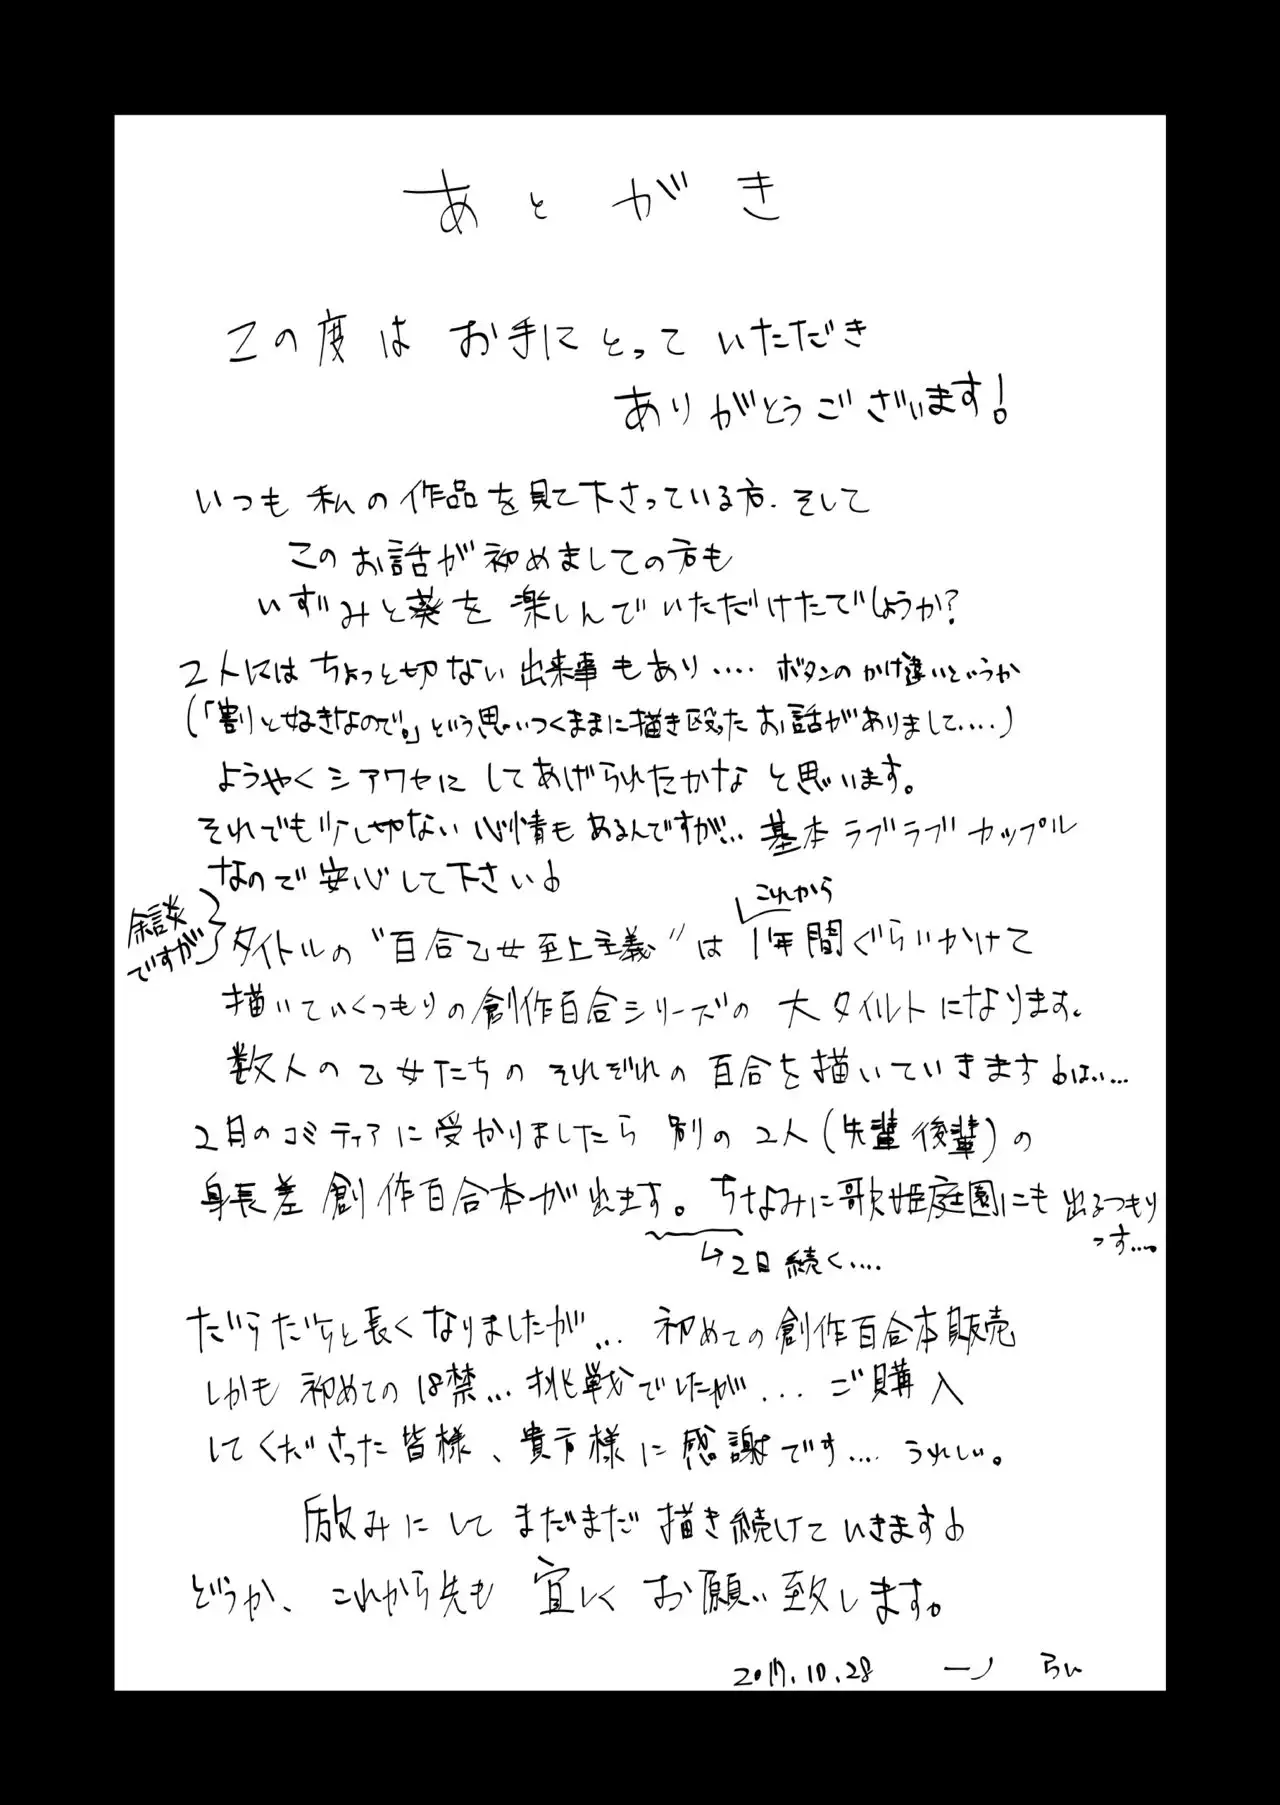 あとがき
この度は お手にとって いただき
ありがとうございます!
いつも 私の作品を見て下さっている方、そして
このお話が初めましての方も
いずみと葵を 楽しんでいただけたでしょうか?
2人には ちょっと切ない出来事もあり.... ボタンのかけ違いというか
(「割と好きなので。」という思いつくままに描き殴ったお話がありまして....)
ようやくシアワセに してあげられたかな と思います。
それでも少し切ない心情も あるんですが... 基本ラブラブカップル
なので安心して下さい♪
余談ですが
これから
タイトルの“百合乙女至上主義”は 1年間ぐらいかけて
描いていくつもりの創作百合シリーズの 大タイルトになります。
数人の乙女たちの それぞれの百合を描いていきます♪はい...
2月のコミティアに受かりましたら 別の2人(先輩後輩)の
身長差創作百合本が出ます。ちなみに歌姫庭園にも 出るつもり
っす...。
→2日続く....
だらだらと長くなりましたが... 初めての創作百合本販売
しかも 初めての18禁... 挑戦でしたが... ご購入
してくださった皆様、貴方様に感謝です.... うれしい。
励みにして まだまだ 描き続けていきます♪
どうか、これから先も 宜しく お願い致します。
2017.10.28 一ノ